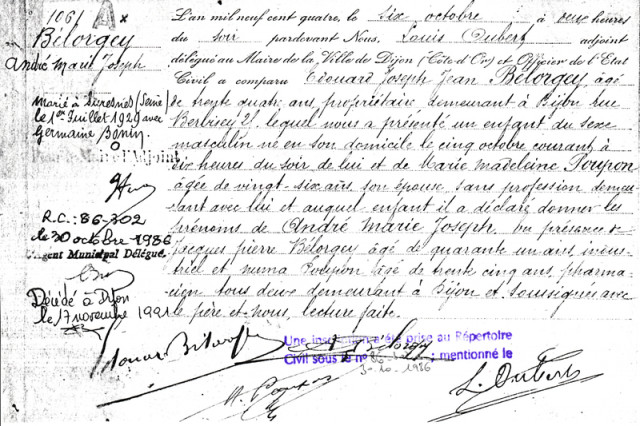 1061 A
Bélorgey
André Marie Joseph
Marié à Suresnes (Seine)
le 1er Juillet 1929 avec
Germaine Bonin
l'Adjoint
R.C.: 86-302
le 30 octobre 1986
L'Agent Municipal Délégué
Décédé à Dijon
le 17 novembre 1991
L'an mil neuf cent quatre, le six octobre à deux heures
du soir pardevant Nous, Louis Aubert adjoint
délégué au Maire de la Ville de Dijon (Côte-d'Or) et Officier de l'État
Civil a comparu Edouard Joseph Jean Bélorgey âgé
de trente quatre ans, propriétaire demeurant à Dijon rue
Berbisey 21, lequel nous a présenté un enfant du sexe
masculin né en son domicile le cinq octobre courant à
six heures du soir de lui et de Marie Madeleine Poupon
âgée de vingt-six ans son épouse, sans profession demeu
rant avec lui et auquel enfant il a déclaré donner les
prénoms de André Marie Joseph. En présence de
Jacques pierre Bélorgey âgé de quarante un ans, indus
triel et Numa Poupon âgé de trente cinq ans, pharma
cien tous deux demeurant à Dijon et soussignés avec
le père et nous, lecture faite.
Une inscription a été prise au Répertoire
Civil sous le n° 86-302; mentionné le
30-10-1986
L. Aubert